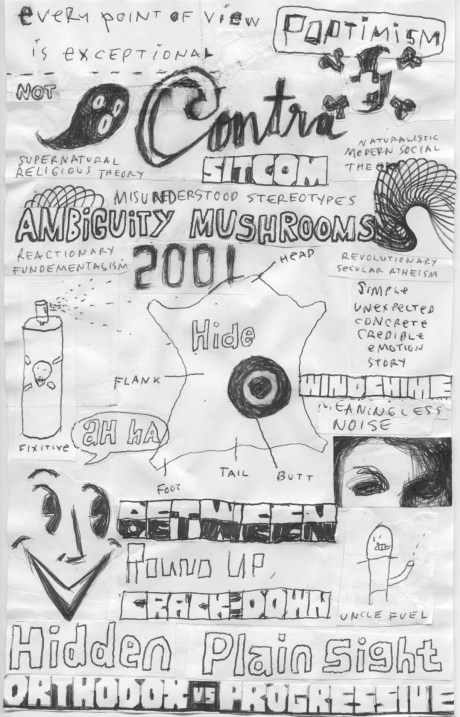 eVeRY POINT OF VIEW
POPTIMISM
IS EXCEPTIONAL
NOT
Contra
SUPERNATURAL
RELIGIOUS THEORY
SITCOM
NATURALISTIC
MODERN SOCIAL
THEORY
MISUNDERSTOOD STEREOTYPES
AMBiGUiTY MUSHROOMS
REACTIONARY
FUNDEMENTALISM
2001
REVOLUTIONARY
SECULAR ATHEISM
HEAD
Hide
SIMPLE
UNEXPECTED
CONCRETE
CREDIBLE
eMOTION
STORY
FLANK
WINDCHIME
MEANINGLESS
NOISE
FIXITIVE
aH hA
FOOT
TAIL
BUTT
BETWEEN
ROUND UP,
CRACK DOWN
UNCLE FUEL
Hidden Plain Sight
ORTHODOX VS PROGRESSIVE